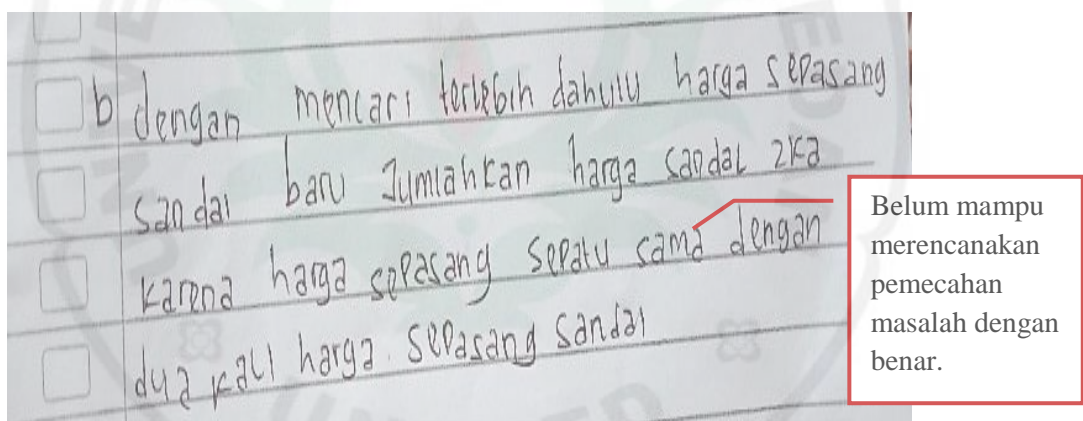 b dengan mencari terlebih dahulu harga sepasang
sandal baru Jumlahkan harga sandal 2ka
karena harga sepasang sepatu sama dengan
dua kali harga sepasang sandal
Belum mampu
merencanakan
pemecahan
masalah dengan
benar.